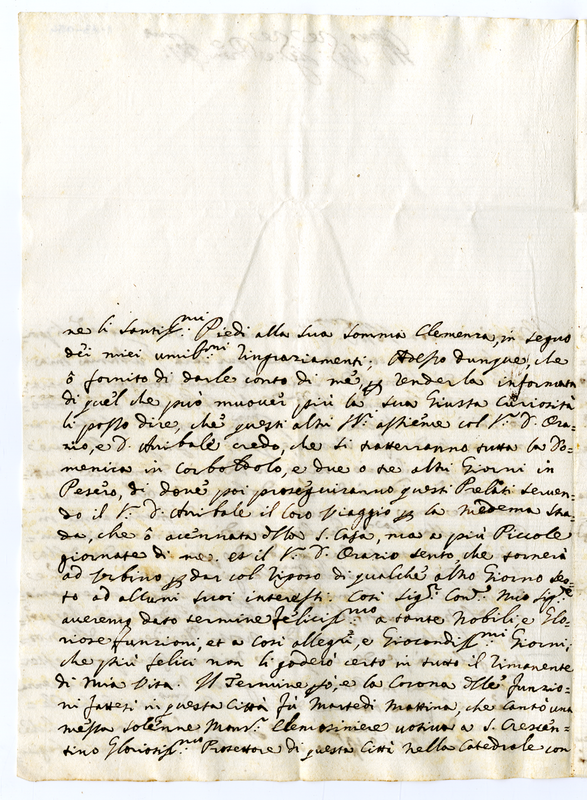 ne li Santiss.mi Piedi alla sua somma Clemenza, in segno
dei miei umil.mi ringraziamenti; Adesso dunque, che
ô fornito di darle conto di mé, per render la informata
di quel che può muover più la sua giusta Curiosità
li posso dire, che questi altri SS.ri assieme col V.o D. Ora-
zio, e D. Anibale credo, che si tratterranno tutta la Do-
menica in Corbordolo, e due o tre altri Giorni in
Pesaro, di dove poi proseguiranno questi Prelati serven-
do il V.o D. Anibale il loro Viaggio per la medema stra-
da, che ô accennata della S. Casa, ma a più Piccole
giornate di me. et il V.o D. Orazio sento, che tornerà
ad Urbino per dar col riposo di qualche altro Giorno
to ad alcuni suoi interessi. Così Sig.r Con.e mio Sig.re
averemo dato termine felicis.mo a tante Nobili, e Glo-
riose funzioni, et a Così allegri, e Giocondiss.mi Giorni;
che più felici non li goderò certo in tutto il rimanente
di mia Vita. Il Termine, e la Corona delle funzio-
ni fattesi in questa Città fù Martedi Mattina, che Cantò una
messa solenne Mons.r Elemosiniere votiva a S. Crescen-
tino Gloriosiss.mo Protettore di questa Città nella Catedrale con